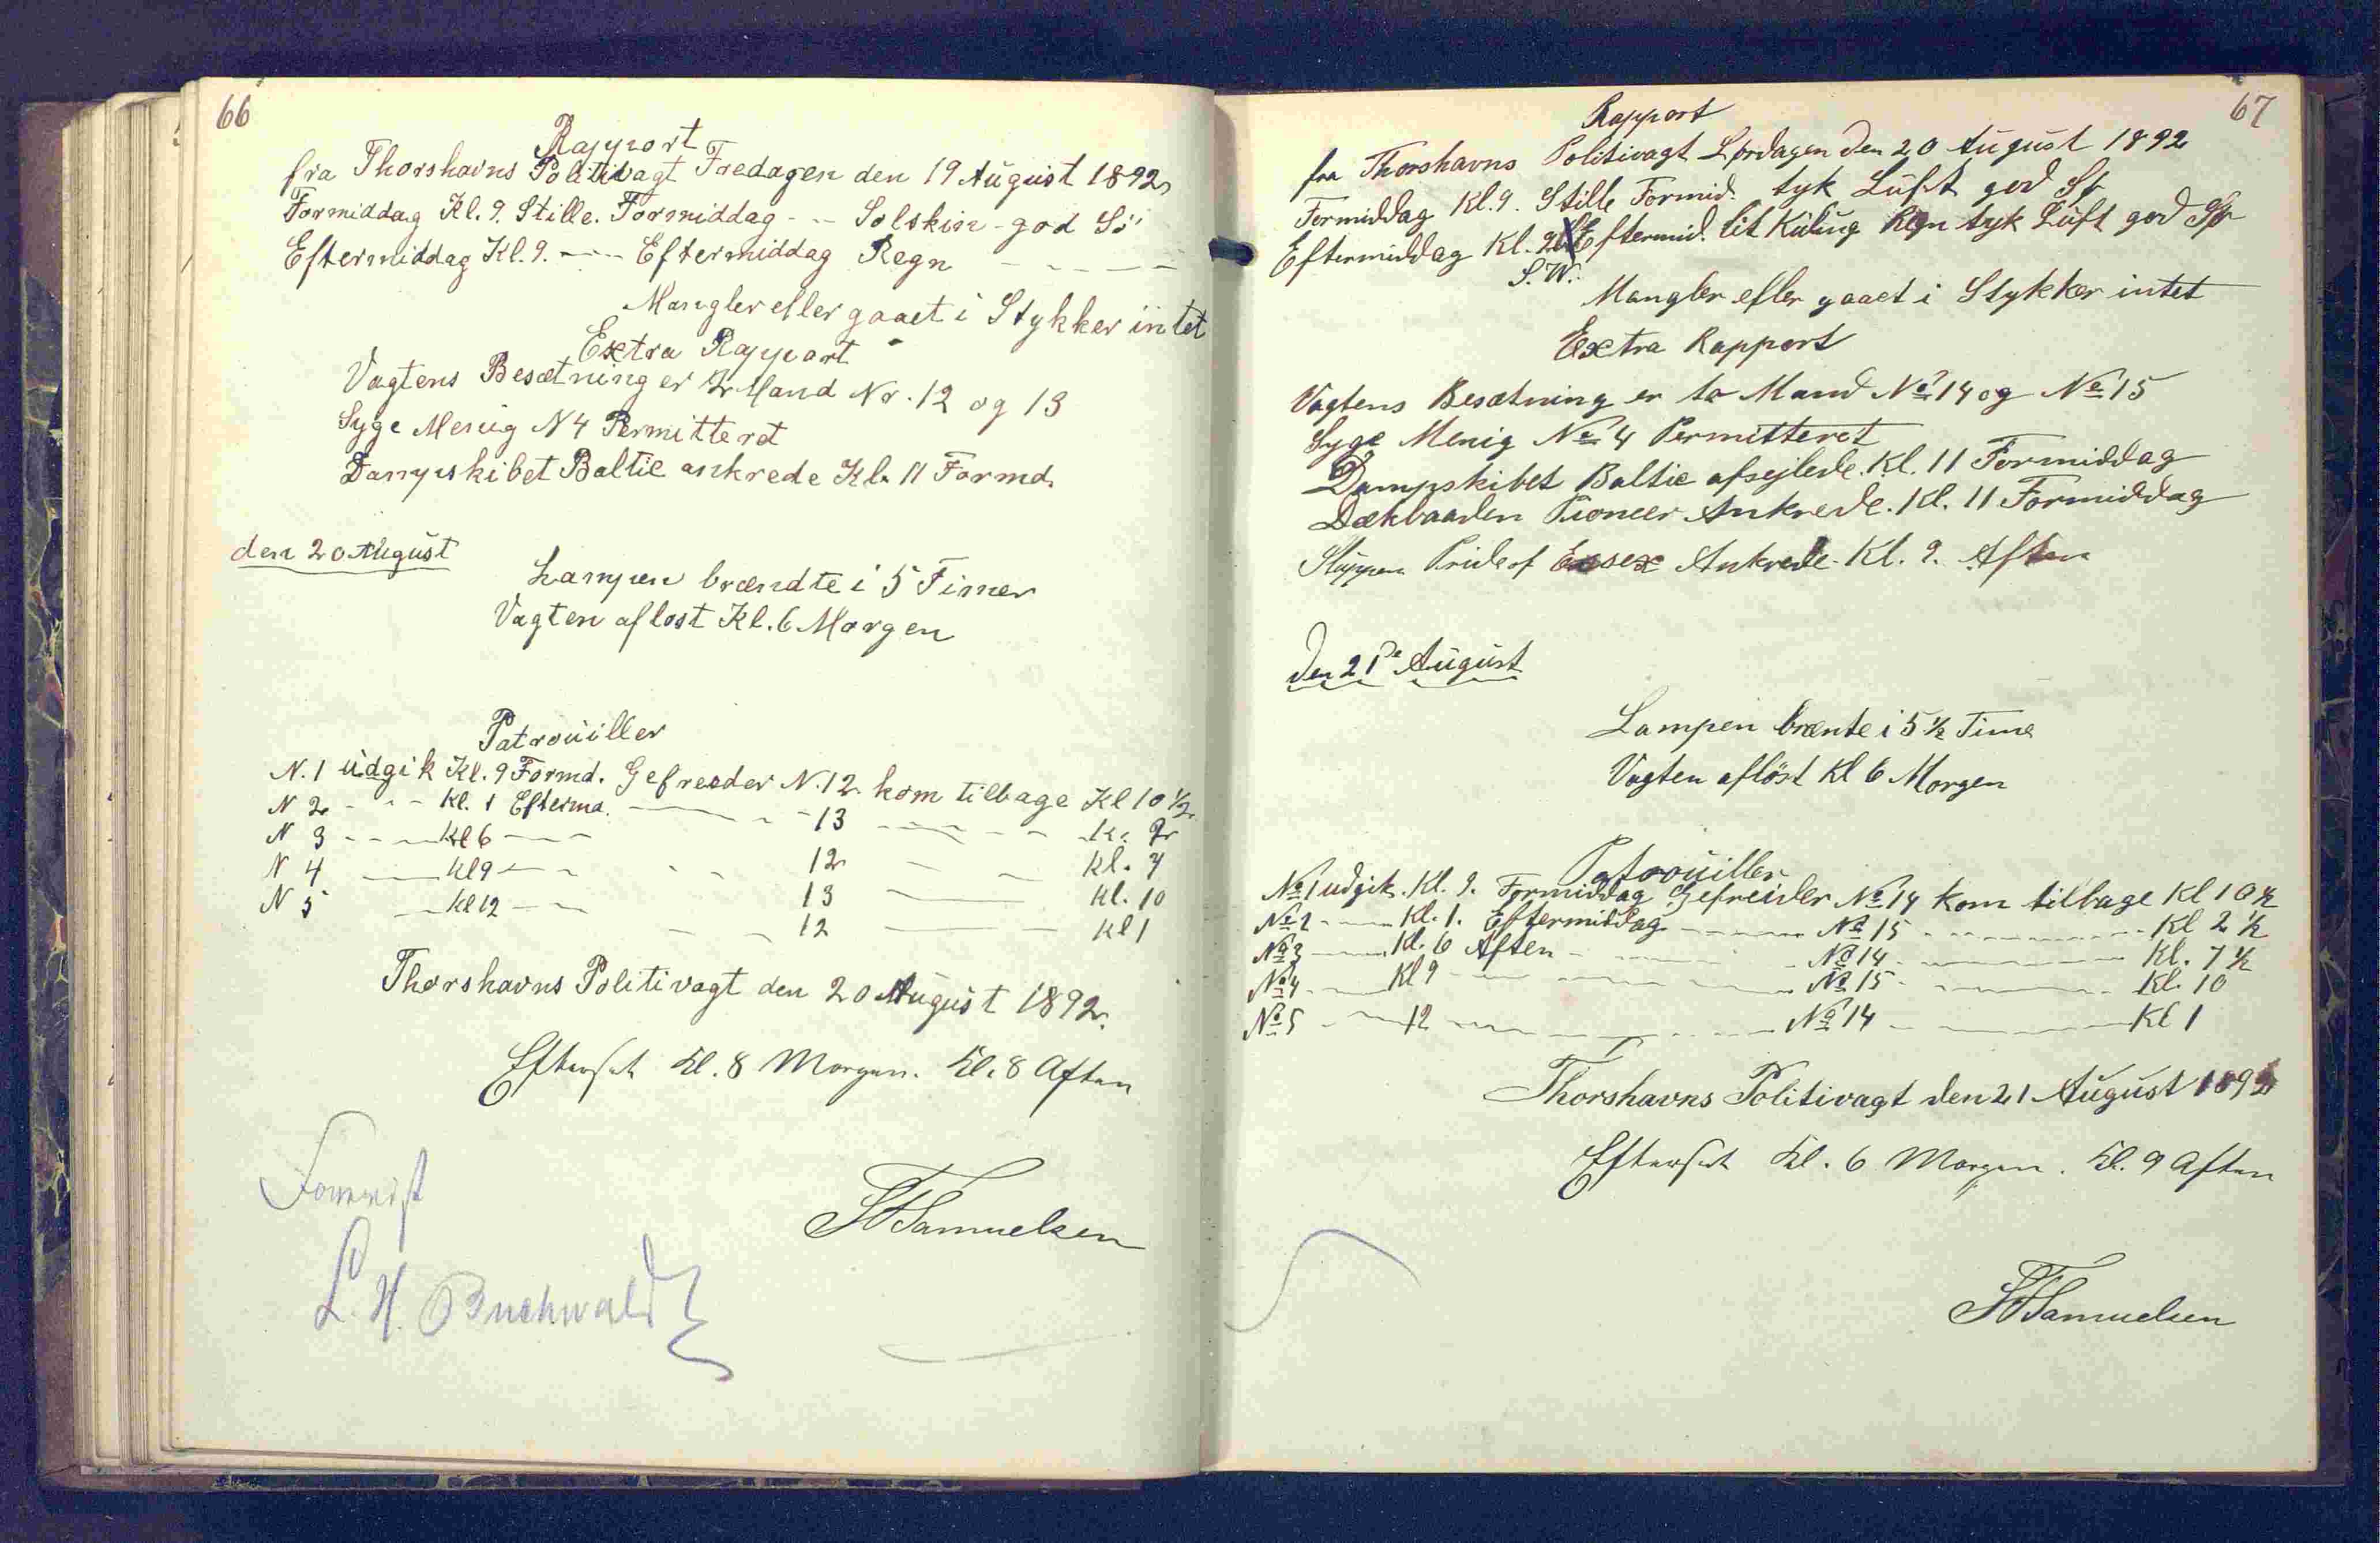 66
Rapport
fra Thorshavns Politivagt Fredagen den 19 August 1892
Formiddag Kl. 9. Stille. Formiddag - - Solskin - god Sö
Eftermiddag Kl. 9. - - - Eftermiddag Regn - - - - -
Mangler eller gaaet i Stykker intet
Extra Rapport
Vagtens Besætning er 2 Mand Nr. 12 og 13
Syge Menig N 4 Permitteret
Dampskibet Baltic ankrede Kl. 11 Formd.
den 20 August
Lampen brændte i 5 Timer
Vagten aflost Kl. 6 Morgen
Patrouiller
N. 1 udgik Kl. 9 Formd. Gefreeder N. 12 kom tilbage Kl 10 1/2
N 2 - - - Kl. 1 Efterma. - - - 13 - - - - Kl. 2
N 3 - - - Kl 6 - - - - - 12 - - Kl. 7
N 4 - Kl 9 - - 13 - - Kl. 10
N 5 - Kl 12 - - - - 12 - - Kl 1
Thorshavns Politivagt den 20 August 1892.
Efterset Kl. 8 Morgen. Kl. 8 Aften
Samuelsen
L. H. Buchwald
67
Rapport
fra Thorshavns Politivagt Lørdagen den 20 August 1892
Formiddag Kl. 9. Stille Formid. tyk Luft god Sø
Eftermiddag Kl. 9 Eftermid. lit Kuling Regn tyk Luft god Sø
S. W.
Mangler eller gaaet i Stykker intet
Extra Rapport
Vagtens Besætning er to Mand No 14 og No 15
Syge Menig No 4 Permitteret
Dampskibet Baltic afsejlede. Kl. 11 Formiddag
Dækbaaden Pioneer Ankrede. Kl. 11 Formiddag
Sluppen Pride of Essex Ankrede. Kl. 9. Aften
den 21de August
Lampen brænte i 5 1/2 Time
Vagten afløst Kl 6 Morgen
Patrouiller
No 1 udgik. Kl. 9. Formiddag Gefreider No 14 kom tilbage Kl 10 1/2
No 2 - - - Kl. 1. Eftermiddag - - - No 15 - - - - Kl 2 1/2
No 3 - - - Kl. 6 Aften - - - No 14 - - - Kl. 7 1/2
No 4 - - Kl 9 - - - - No 15 - - - - Kl. 10
No 5 - - 12 - - - - No 14 - - - - Kl 1
Thorshavns Politivagt den 21 August 1892
Efterset Kl. 6 Morgen. Kl. 9 Aften
Samuelsen